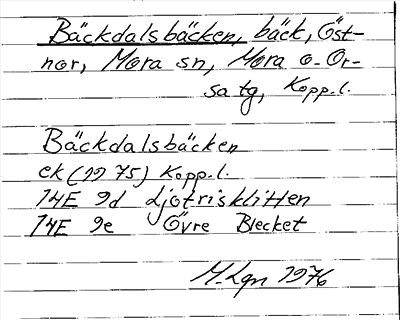 Bäckdalsbäcken, bäck, Öst-
nor, Mora sn, Mora o. Or-
sa tg, Kopp. l.
Bäckdalsbäcken
ek (1975) Kopp. l.
14E 9d Ljotrisklitten
14E 9e Övre Blecket
M. Lgn 1976